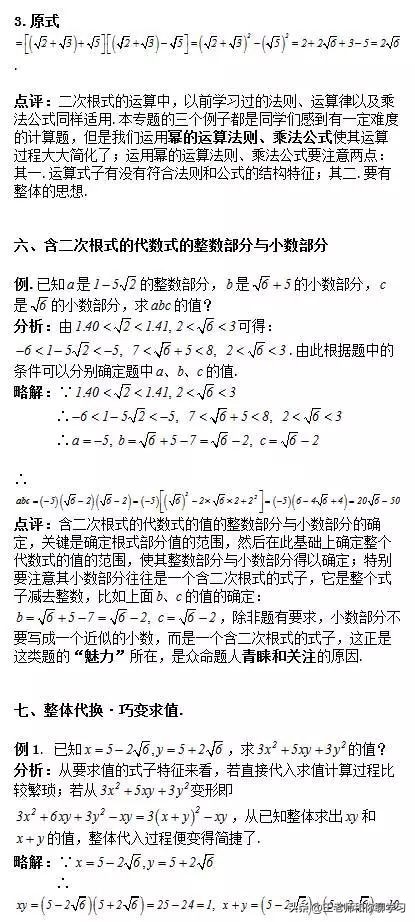 3.原式
=[(√2+√3)+√5][(√2+√3)-√5]=(√2+√3)²-(√5)²=2+2√6+3-5=2√6
.
点评：二次根式的运算中，以前学习过的法则、运算律以及乘
法公式同样适用.本专题的三个例子都是同学们感到有一定难度
的计算题，但是我们运用幂的运算法则、乘法公式使其运算
过程大大简化了；运用幂的运算法则、乘法公式要注意两点：
其一.运算式子有没有符合法则和公式的结构特征；其二.要有
整体的思想.
六、含二次根式的代数式的整数部分与小数部分
例.已知a是1-5√2的整数部分，b是√6+5的小数部分，c
是√6的小数部分，求abc的值？
分析：由1.40<√2<1.41, 2<√6<3可得：
-6<1-5√2<-5, 7<√6+5<8, 2<√6<3.由此根据题中的
条件可以分别确定题中a、b、c的值.
略解：∵1.40<√2<1.41, 2<√6<3
∴-6<1-5√2<-5, 7<√6+5<8, 2<√6<3
∴a=-5, b=√6+5-7=√6-2, c=√6-2
∴
abc=(-5)(√6-2)(√6-2)=(-5)[(√6)²-2×√6×2+2²]=(-5)(6-4√6+4)=20√6-50
点评：含二次根式的代数式的值的整数部分与小数部分的确
定，关键是确定根式部分值的范围，然后在此基础上确定整个
代数式的值的范围，使其整数部分与小数部分得以确定；特别
要注意其小数部分往往是一个含二次根式的式子，它是整个式
子减去整数，比如上面b、c的值的确定：
b=√6+5-7=√6-2, c=√6-2，除非题有要求，小数部分不
要写成一个近似的小数，而是一个含二次根式的式子，这正是
这类题的“魅力”所在，是众命题人青睐和关注的原因.
七、整体代换·巧变求值.
例1. 已知x=5-2√6,y=5+2√6，求3x²+5xy+3y²的值？
分析：从要求值的式子特征来看，若直接代入求值计算过程比
较繁琐；若从3x²+5xy+3y²变形即
3x²+6xy+3y²-xy=3(x+y)²-xy，从已知整体求出xy和
x+y的值，整体代入过程便变得简捷了.
略解：∵x=5-2√6,y=5+2√6
∴
xy=(5-2√6)(5+2√6)=25-24=1, x+y=(5-2√6)+(5+2√6)=10